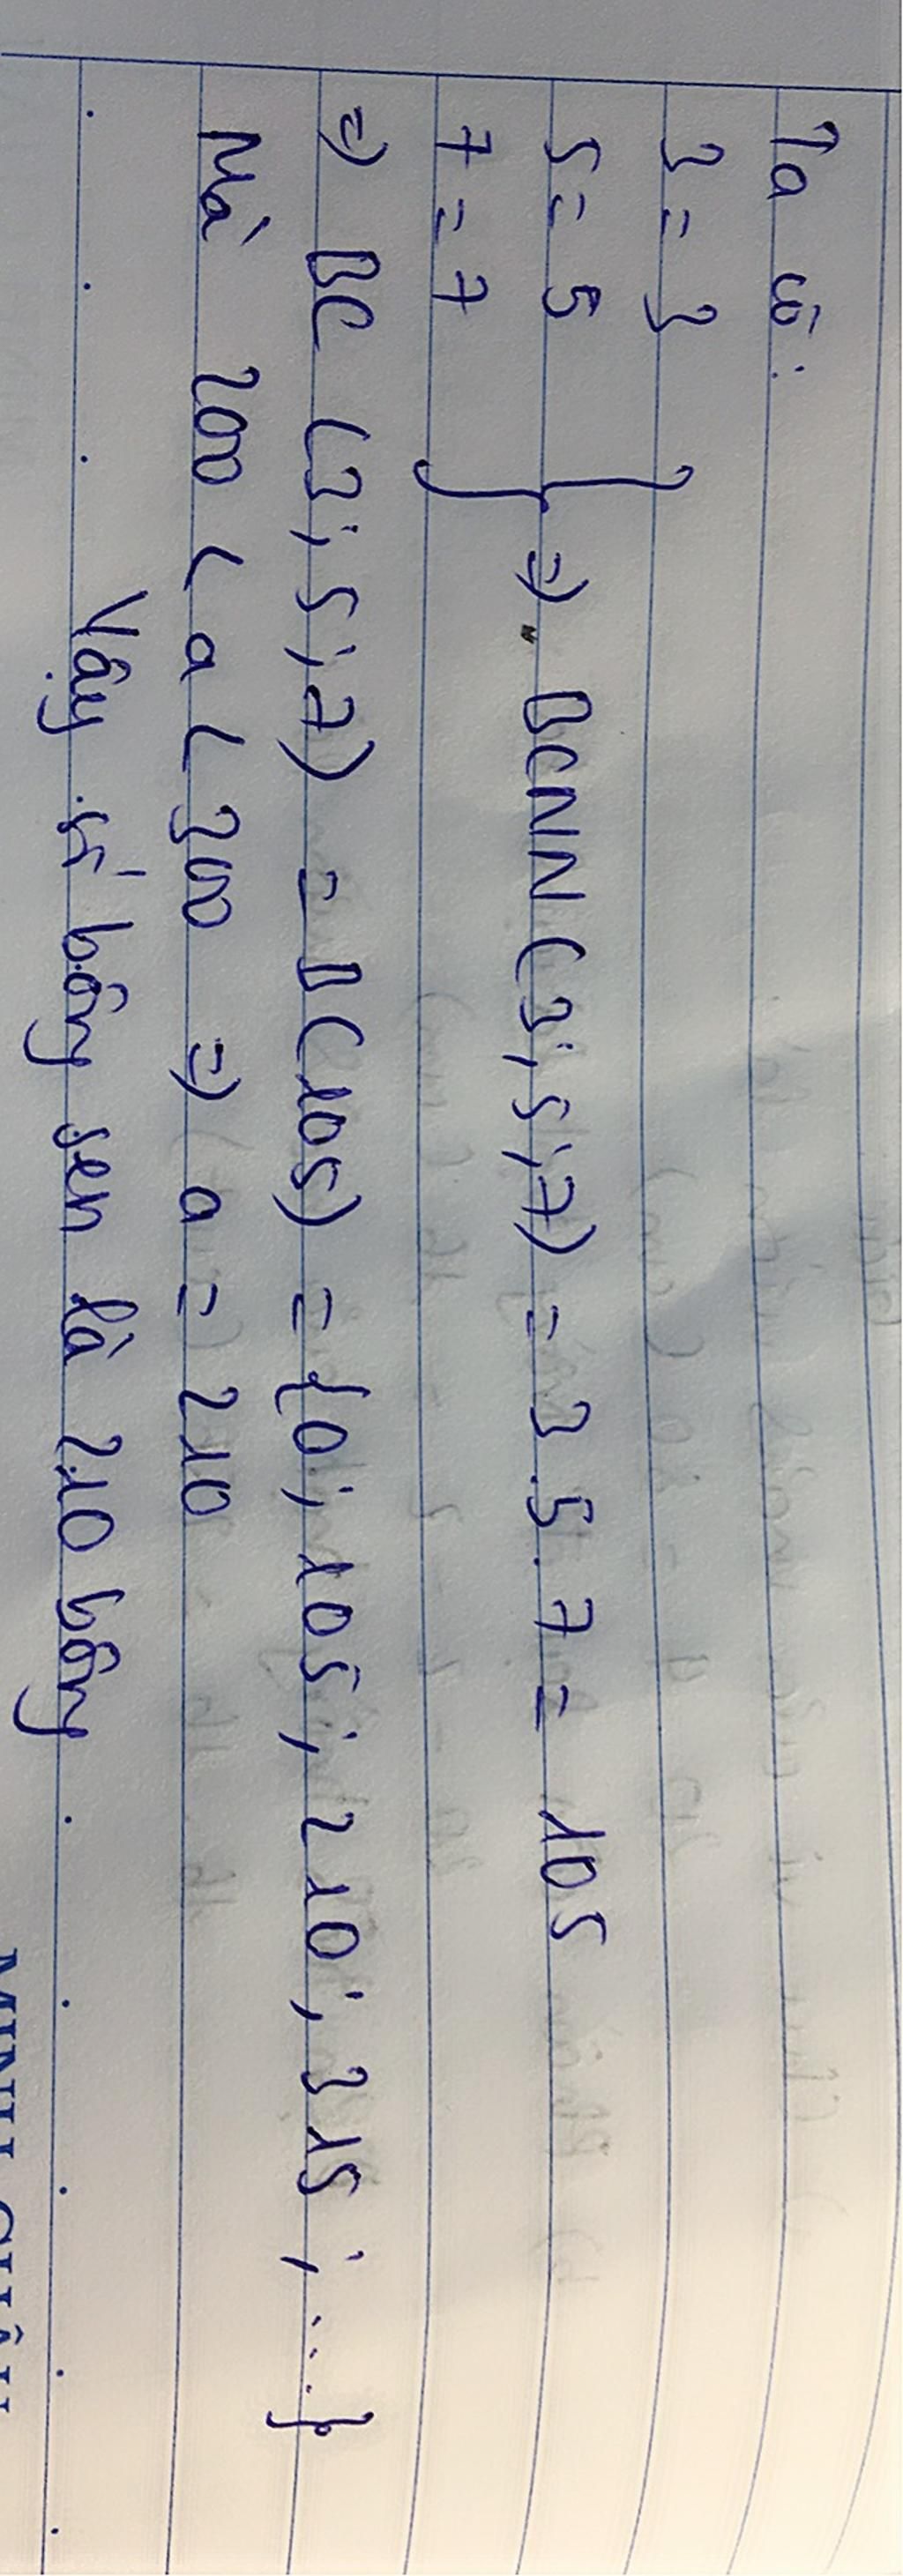 Ta có:
3 = 3
5 = 5 } => BCNN (3; 5; 7) = 3.5.7 = 105
7 = 7
=> BC (3; 5; 7) = B(105) = {0; 105; 210; 315; ...}
Mà 200 < a < 300 => a = 210
Vậy số bông sen là 210 bông
MINH CHÂU